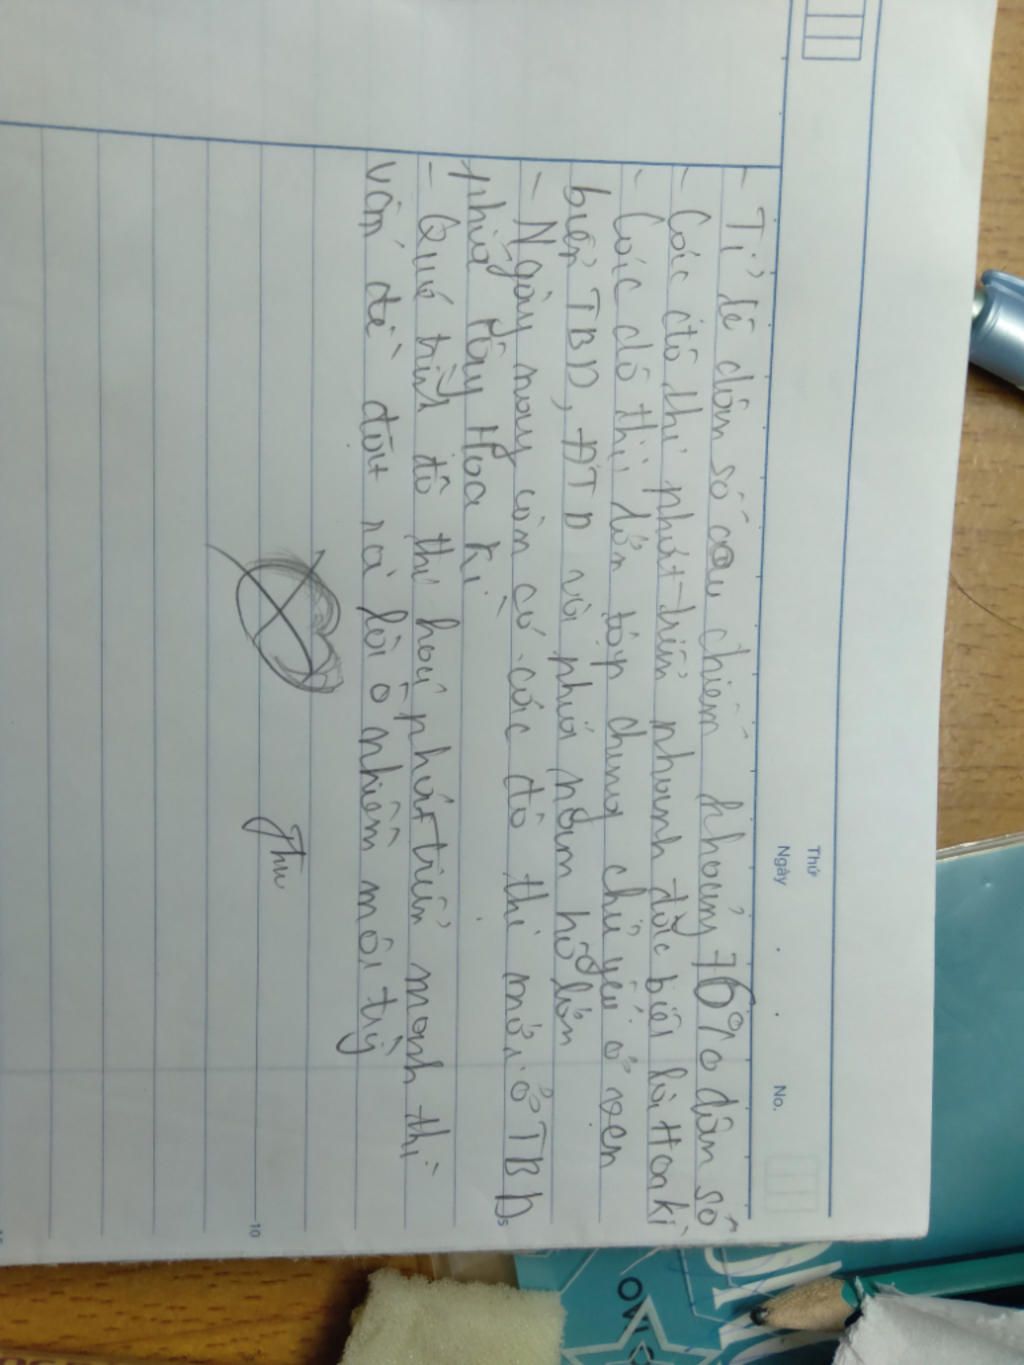 Thứ
Ngày . . No.
- Tỉ lệ dân số cau chiếm khoảng 76% dân số
- Các đô thị phát triển nhanh đặc biệt là Hoa kì
- Các đô thị lớn tập chung chủ yếu ở ven
biển TBD, ĐTD và phía nam hồ lớn
- Ngày nay còn có các đô thị mới ở TBD
phía tây Hoa kì
- Quá trình đô thị hoá phát triển mạnh thì
vấn đề đặt ra là ô nhiễm môi trg
Thu
5
10